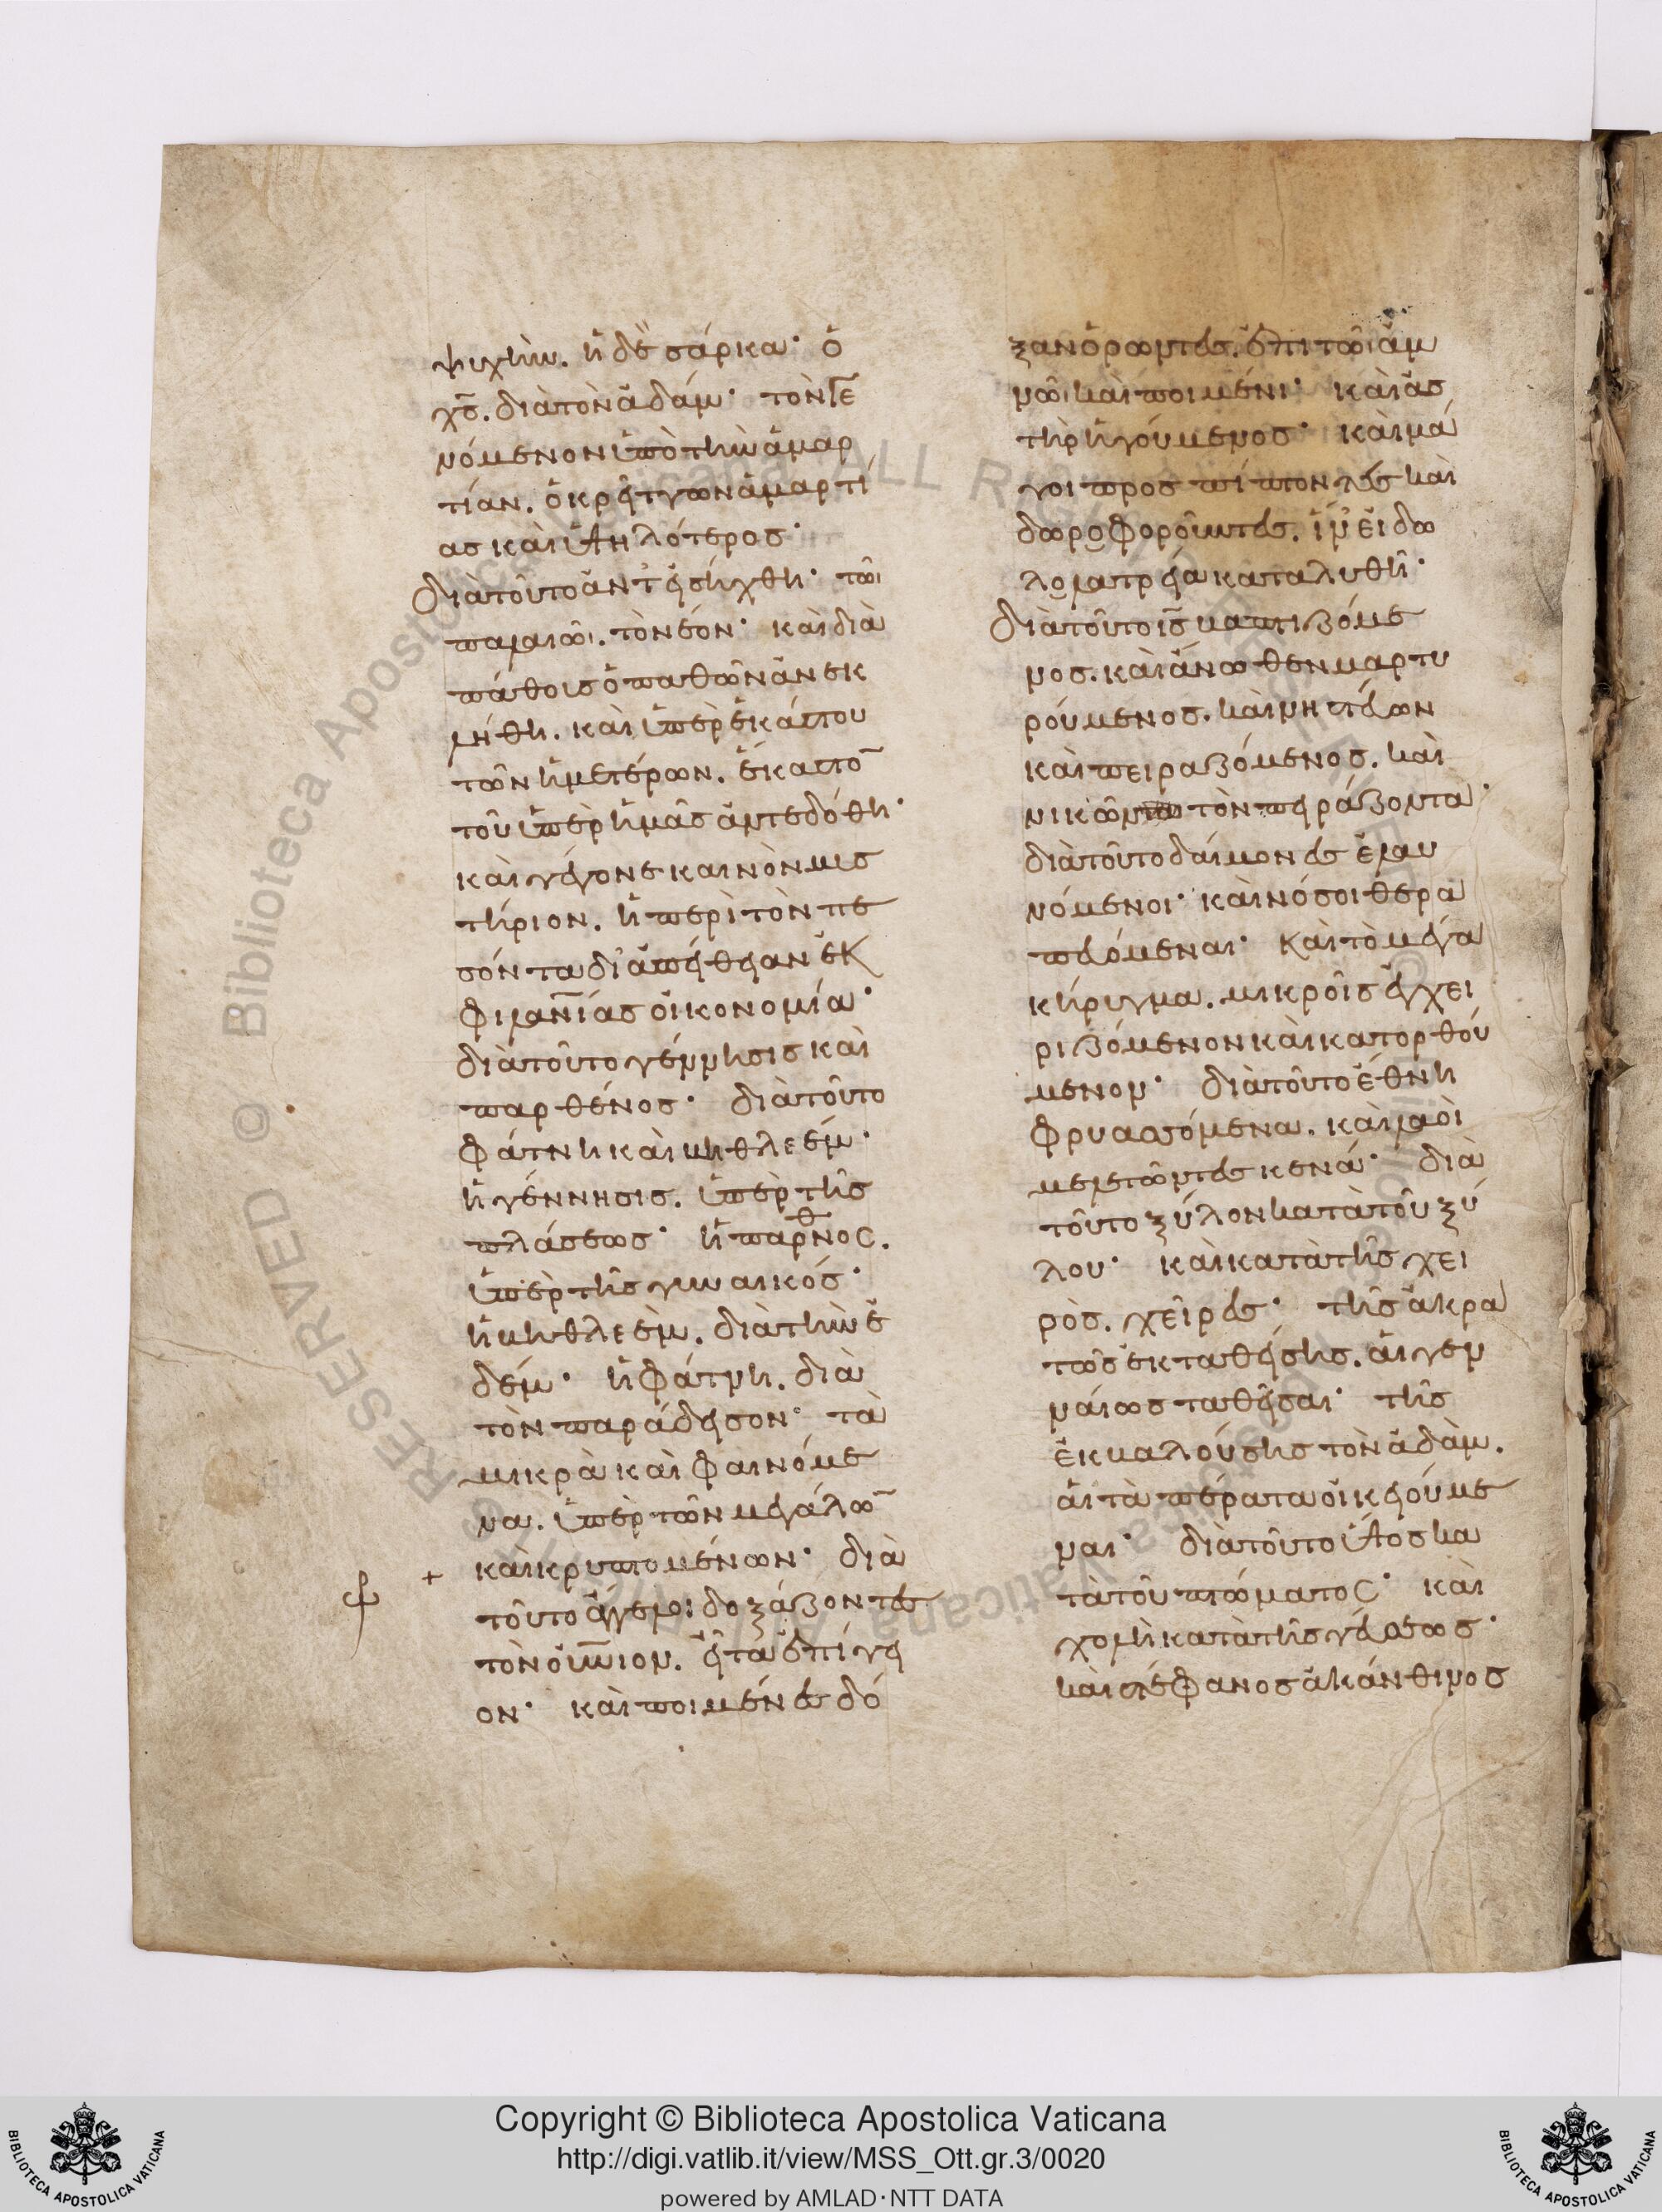 ψυχὴν. ἡ δὲ σάρκα· ὁ
χ̅ς̅. διὰ τὸν ἀδάμ· τὸν γε
νόμενον ὑπὸ τὴν ἁμαρ
τίαν. ὁ κρείττων ἁμαρτί
ας καὶ ὑψηλότερος·
διὰ τοῦτο ἀντεισήχθη· τῶι
παλαιῶι. τὸ νέον· καὶ διὰ
πάθους ὁ παθὼν ἀνεκ
λήθη. καὶ ὑπὲρ ἑκάστου
τῶν ἡμετέρων. ἕκαστο̅
τοῦ ὑπὲρ ἡμᾶς ἀντεδόθη·
καὶ γέγονε καινὸν μυσ
τήριον. ἡ περὶ τὸν πε
σόντα δι' ἀπείθειαν ἐκ
φιλα̅ν̅ί̅ας οἰκονομία·
διὰ τοῦτο γέννησις καὶ
παρθένος· διὰ τοῦτο
φάτνη καὶ βηθλεέμ·
ἡ γέννησις. ὑπὲρ τῆς
πλάσεως· ἡ παρθνος.
ὑπὲρ τῆς γυναικός·
ἡ βηθλεὲμ. διὰ τὴν ἐ
δέμ· ἡ φάτνη. διὰ
τὸν παράδεισον· τὰ
μικρὰ καὶ φαινόμε
να. ὑπὲρ τῶν μεγάλω̅
καὶ κρυπτομένων· διὰ
τοῦτο ἄγγελοι δοξάζοντες
τὸν οὐ̅ν̅ιον. εἶτα ἐπίγει
ον· καὶ ποιμένες δό
ξαν ὁρῶντες. ἐπὶ τῶι ἀμ
νῶι καὶ ποιμένι· καὶ ἀσ
τὴρ ἡγούμενος· καὶ μά
γοι προσπίπτοντες καὶ
δωροφοροῦντες. ἵν' εἰδω
λολατρεία καταλυθῆ·
διὰ τοῦτο ι̅ς̅ βαπτιζόμε
νος. καὶ ἄνωθεν μαρτυ
ρούμενος. καὶ νηστεύων
καὶ πειραζόμενος. καὶ
νικῶν τὸν πειράζοντα·
διὰ τοῦτο δαίμονες ἐλαυ
νόμενοι· καὶ νόσοι θερα
πευόμεναι· καὶ τὸ μέγα
κήρυγμα. μικροῖς ἐγχει
ριζόμενον καὶ κατορθού
μενον· διὰ τοῦτο ἔθνη
φρυασσόμενα. καὶ λαοὶ
μελετῶντες κενά· διὰ
τοῦτο ξύλον κατὰ τοῦ ξύ
λου· καὶ κατὰ τῆς χει
ρὸς. χεῖρες· τῆς ἀκρα
τῶς ἐκταθείσης. αἱ γεν
ναίως ταθεῖσαι· τῆς
ἐκβαλούσης τὸν ἀδὰμ.
αἱ τὰ πέρατα οἰκειούμε
ναι· διὰ τοῦτο ὕψος κα
τὰ τοῦ πτώματος· καὶ
χολὴ κατὰ τῆς γεύσεως·
καὶ στέφανος ἀκάνθινος
Copyright © Biblioteca Apostolica Vaticana
http://digi.vatlib.it/view/MSS_Ott.gr.3/0020
powered by AMLAD·NTT DATA